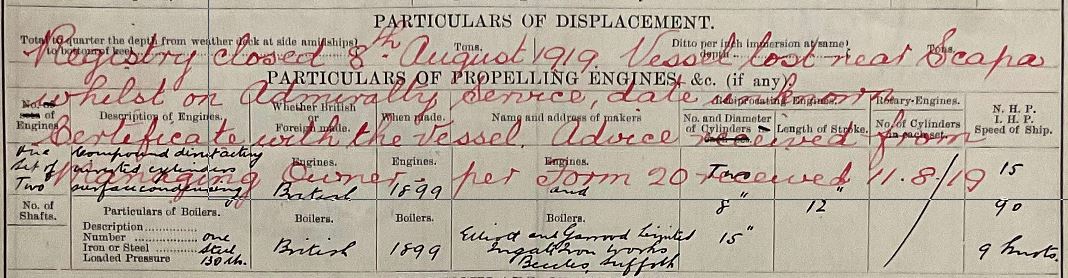 PARTICULARS OF DISPLACEMENT.
Total to quarter the depth from weather deck at side amidships to bottom of keel Tons. Ditto per inch immersion at same depth Tons.
Registry closed 8th August 1919. Vessel lost near Scapa
PARTICULARS OF PROPELLING ENGINES, &c. (if any)
whilst on Admiralty Service, date unknown
No. of sets of Engines. Description of Engines. Whether British or Foreign made. When made. Name and address of makers Reciprocating Engines. No. and Diameter of Cylinders Length of Stroke. Rotary Engines. No. of Cylinders in each set. N. H. P. I. H. P. Speed of Ship.
Certificate with the Vessel. Advice received from
Managing Owner. per Form 20 received 11.8.19
One Set of Two Compound direct acting inverted cylinders surface condensing Engines. British Engines. 1899 Engines. and Two 8" 12" 15
90
No. of Shafts. Particulars of Boilers. Boilers. Boilers. Boilers.
Description
Number one
Iron or Steel Steel
Loaded Pressure 130 lb.
British 1899 Elliott and Garrood Limited 15"
Ingate Iron Works
Beccles Suffolk
9 knots.